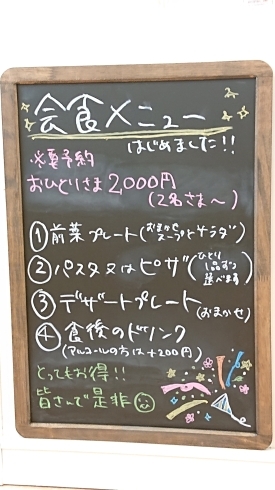 会食メニュー
はじめました!!
※要予約
おひとりさま2,000円
(2名さま〜)
①前菜プレート(おまかせスープとサラダ)
②パスタ又はピザ(ひとり1品ずつ選べます)
③デザートプレート(おまかせ)
④食後のドリンク
(アルコールの方は+200円)
とってもお得!!
皆さんで是非